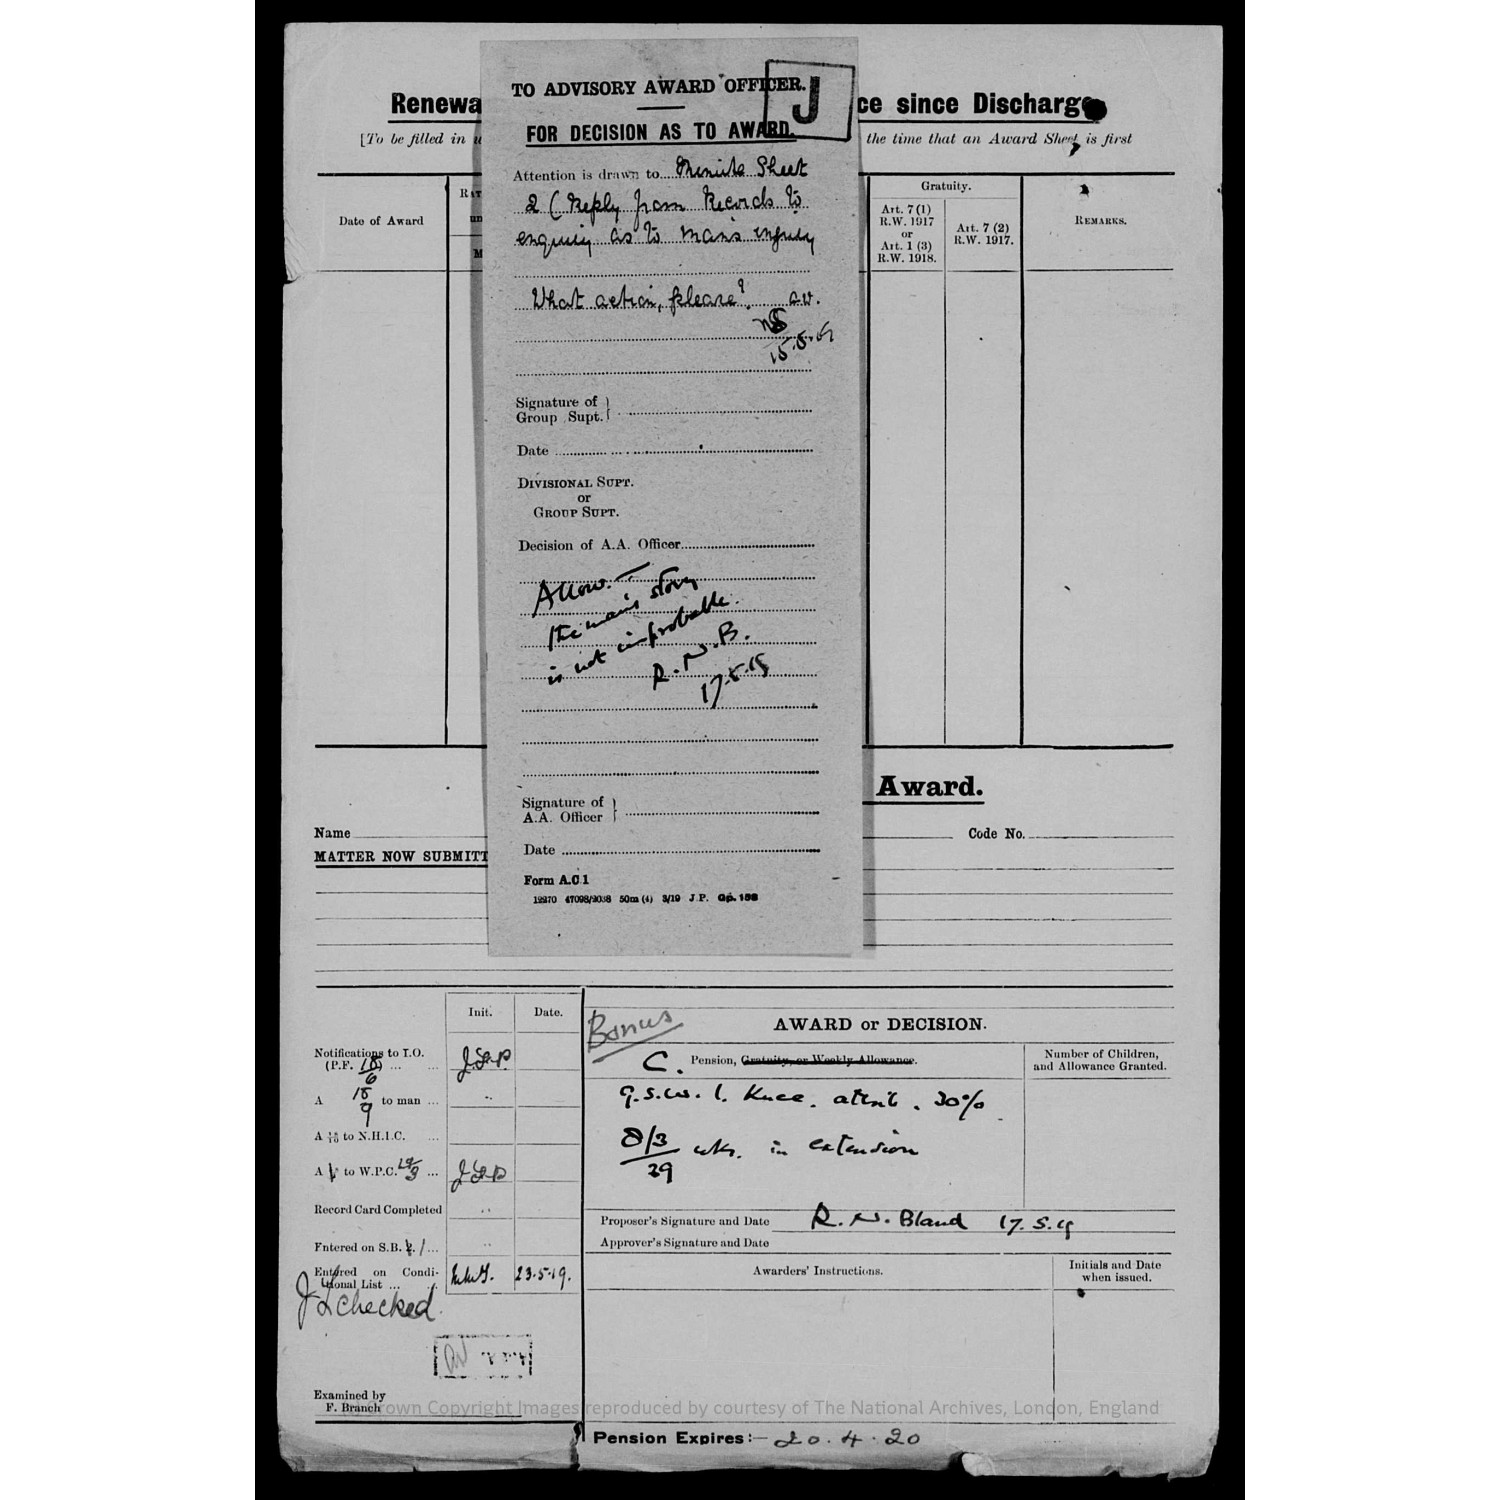 TO ADVISORY AWARD OFFICER.
J
FOR DECISION AS TO AWARD.
Attention is drawn to Minute Sheet
2 (Reply from Records to
enquiry as to man's injury
What action, please? aw.
15.5.19
Signature of
Group Supt.
Date
DIVISIONAL SUPT.
or
GROUP SUPT.
Decision of A.A. Officer
Allow. —
The man's story
is not improbable.
R.N.B.
17.5.19
Signature of
A.A. Officer
Date
Form A.C.1
12270 47098/2038 50m (4) 3/19 J.P. Gp. 158
Renewa
ce since Discharge
[To be filled in u
the time that an Award Sheet is first
Date of Award
RAT
un
M
Gratuity.
Art. 7 (1)
R.W. 1917
or
Art. 1 (3)
R.W. 1918.
Art. 7 (2)
R.W. 1917.
REMARKS.
Award.
Name
Code No.
MATTER NOW SUBMITT
Init.
Date.
Notifications to I.O.
(P.F. 18/6) ...
A 18/9 to man ...
A 18/10 to N.H.I.C. ...
A to W.P.C. ...
Record Card Completed
Entered on S.B. ...
Entered on Condi-
tional List ...
23.5.19.
checked
Examined by
F. Branch
Bonus
AWARD or DECISION.
C. Pension, Gratuity, or Weekly Allowance.
Number of Children,
and Allowance Granted.
G.S.W. l. Knee. attrib. 30%
8/3
39 wks. in extension
Proposer's Signature and Date R. N. Bland 17.5.19
Approver's Signature and Date
Awarders' Instructions.
Initials and Date
when issued.
Crown Copyright Images reproduced by courtesy of The National Archives, London, England
Pension Expires:— 20.4.20